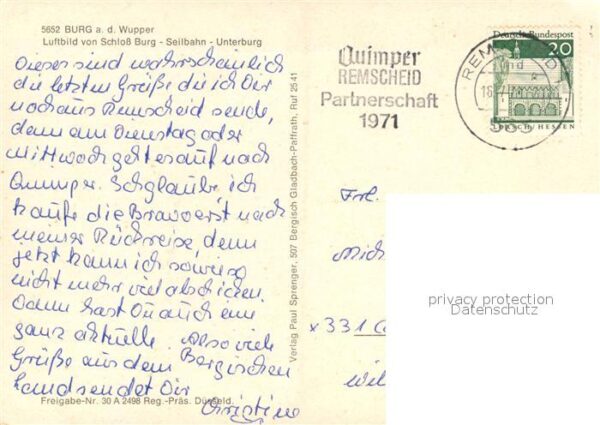 5652 BURG a. d. Wupper
Luftbild von Schloß Burg - Seilbahn - Unterburg
Dieses sind wahrscheinlich
die letzten Grüße die ich Dir
noch aus Remscheid sende,
denn am Dienstag oder
Mittwoch geht es auf nach
Quimper. Ich glaube, ich
kaufe die Bravo erst nach
meiner Rückreise, denn
jetzt kann ich sowieso
nicht mehr viel abschicken.
Dann hast Du auch ein
ganz aktuelle. Also viele
Grüße aus dem Bergischen
Land sendet Dir
Christine
Freigabe-Nr. 30 A 2498 Reg.-Präs. Düsseld.
Verlag Paul Sprenger, 507 Bergisch Gladbach-Paffrath, Ruf 25 41
Quimper
REMSCHEID
Partnerschaft
1971
REMSCHEID
Deutsche Bundespost
20
LORSCH/HESSEN
Frl.
x 331
privacy protection
Datenschutz